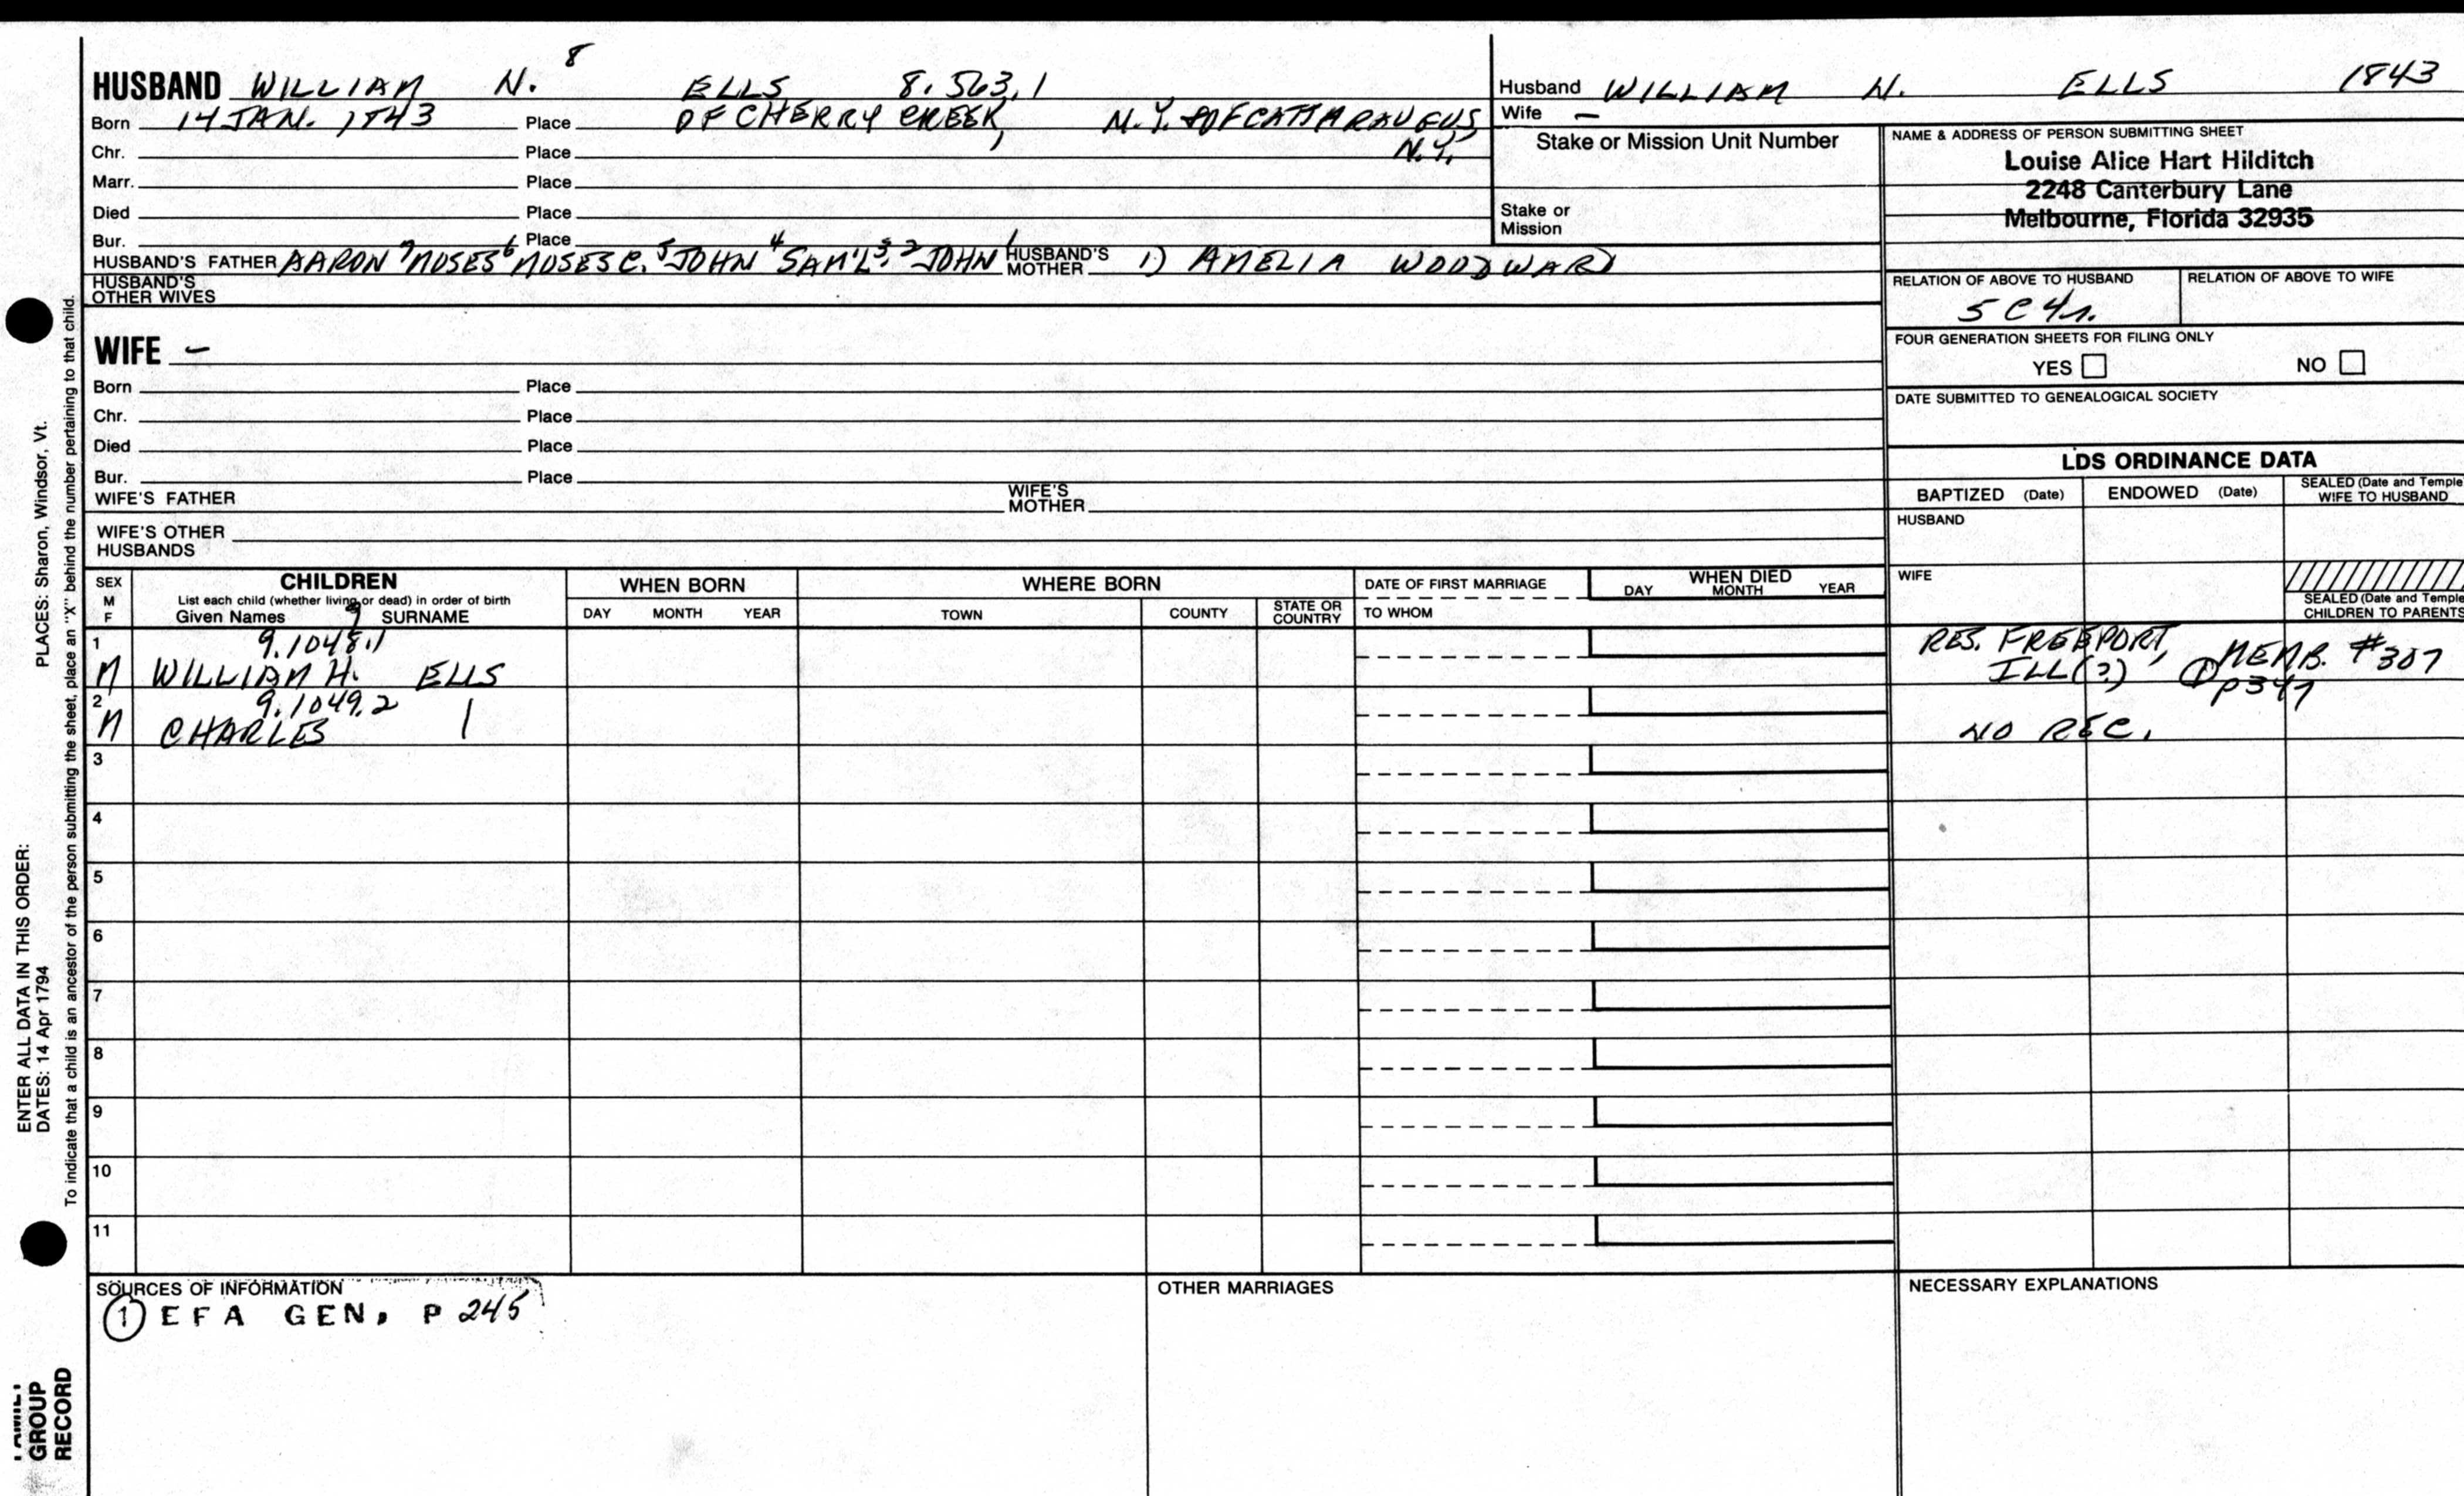 HUSBAND WILLIAM N. 8 ELLS 8.563.1
Born 14 JAN. 1843 Place OF CHERRY CREEK, N.Y. OF CATTARAUGUS, N.Y.
Chr. Place
Marr. Place
Died Place
Bur. Place
HUSBAND'S FATHER AARON 7 MOSES 6 MOSES C. 5 JOHN 4 SAM'L 3, 2 JOHN 1 HUSBAND'S MOTHER 1) AMELIA WOODWARD
HUSBAND'S OTHER WIVES
Husband WILLIAM N. ELLS 1843
Wife –
Stake or Mission Unit Number
Stake or Mission
NAME & ADDRESS OF PERSON SUBMITTING SHEET
Louise Alice Hart Hilditch
2248 Canterbury Lane
Melbourne, Florida 32935
RELATION OF ABOVE TO HUSBAND RELATION OF ABOVE TO WIFE
5C4r.
FOUR GENERATION SHEETS FOR FILING ONLY
YES NO
DATE SUBMITTED TO GENEALOGICAL SOCIETY
WIFE –
Born Place
Chr. Place
Died Place
Bur. Place
WIFE'S FATHER WIFE'S MOTHER
WIFE'S OTHER HUSBANDS
LDS ORDINANCE DATA
BAPTIZED (Date) ENDOWED (Date) SEALED (Date and Temple WIFE TO HUSBAND
HUSBAND
WIFE
SEALED (Date and Temple CHILDREN TO PARENTS
SEX M F CHILDREN WHEN BORN WHERE BORN DATE OF FIRST MARRIAGE WHEN DIED
List each child (whether living or dead) in order of birth
Given Names 9 SURNAME DAY MONTH YEAR TOWN COUNTY STATE OR COUNTRY TO WHOM DAY MONTH YEAR
1 9.1048.1
M WILLIAM H. ELLS
RES. FREEPORT, ILL(?) 1 MEMB. #307 p347
2 9.1049.2
M CHARLES | NO REC.
3
4
5
6
7
8
9
10
11
SOURCES OF INFORMATION
1 EFA GEN, P 245
OTHER MARRIAGES
NECESSARY EXPLANATIONS
ENTER ALL DATA IN THIS ORDER:
DATES: 14 Apr 1794 PLACES: Sharon, Windsor, Vt.
To indicate that a child is an ancestor of the person submitting the sheet, place an "X" behind the number pertaining to that child.
GROUP
RECORD